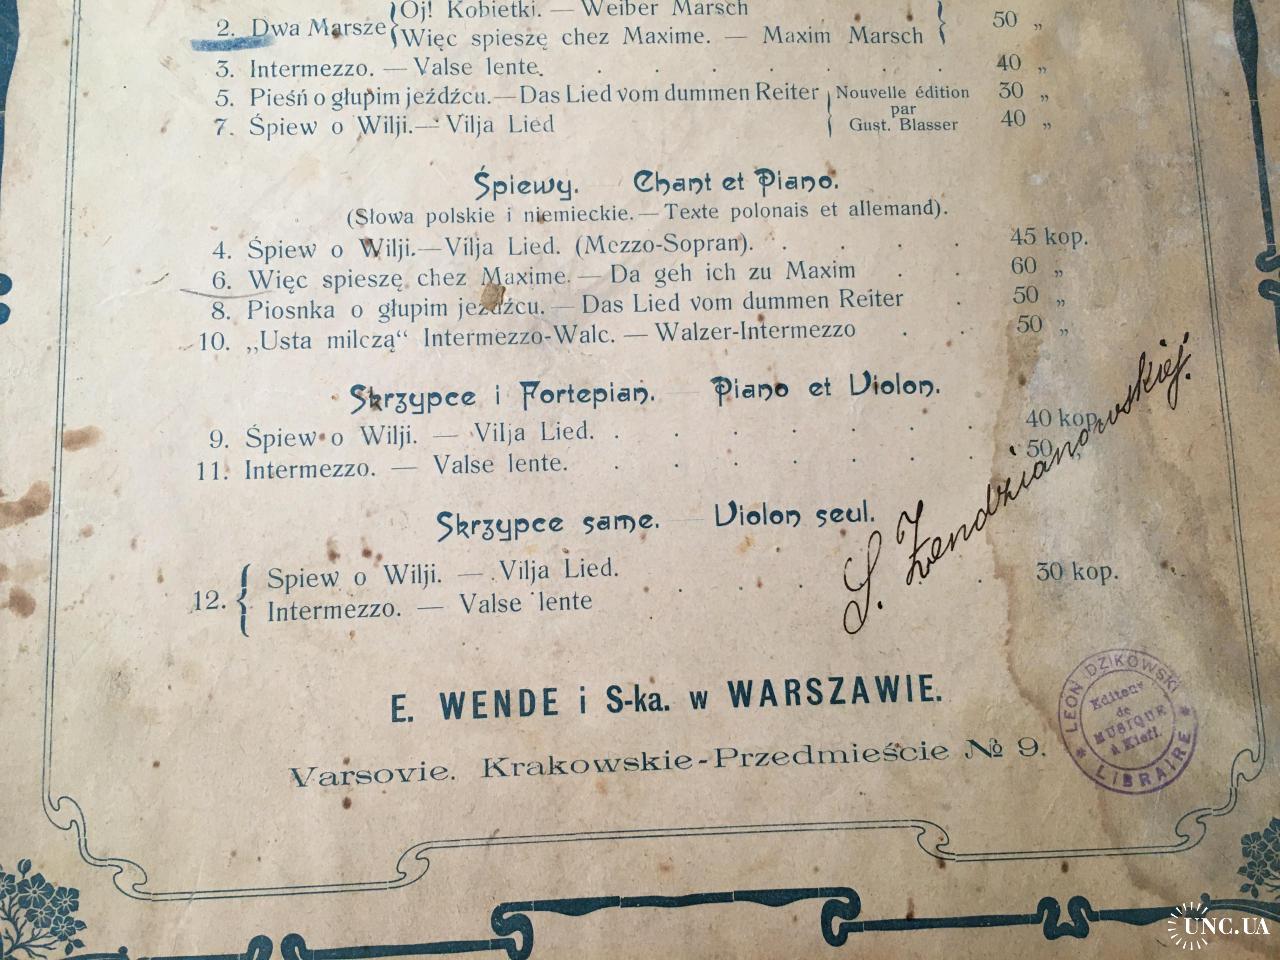 2. Dwa Marsze { Oj! Kobietki. — Weiber Marsch
Więc spieszę chez Maxime. — Maxim Marsch } 50 „
3. Intermezzo. — Valse lente. . . . . . . . 40 „
5. Pieśń o głupim jeźdźcu. — Das Lied vom dummen Reiter } Nouvelle édition 30 „
par
7. Śpiew o Wilji. — Vilja Lied } Gust. Blasser 40 „
Śpiewy. Chant et Piano.
(Słowa polskie i niemieckie. — Texte polonais et allemand).
4. Śpiew o Wilji. — Vilja Lied. (Mezzo-Sopran). . . . . 45 kop.
6. Więc spieszę chez Maxime. — Da geh ich zu Maxim . . 60 „
8. Piosnka o głupim jeźdźcu. — Das Lied vom dummen Reiter . 50 „
10. „Usta milczą“ Intermezzo-Walc. — Walzer-Intermezzo . . 50 „
Skrzypce i Fortepian. Piano et Violon.
9. Śpiew o Wilji. — Vilja Lied. . . . . . . . 40 kop.
11. Intermezzo. — Valse lente. . . . . . . . 50 „
Skrzypce same. Violon seul.
12. { Spiew o Wilji. — Vilja Lied.
Intermezzo. — Valse lente . . . . . 30 kop.
E. WENDE i S-ka. w WARSZAWIE.
Varsovie. Krakowskie-Przedmieście № 9.
LEON DZIKOWSKI
Editeur
de
MUSIQUE
à Kieff.
LIBRAIRE
UNC.UA